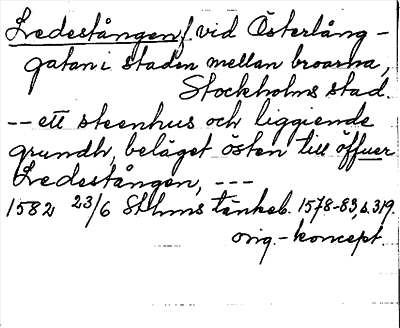 Ledestången, f. vid Österlång-
gatan i staden mellan broarna,
Stockholms stad.
-- ett steenhus och liggiende
grundh, beläget östen till öffuer
Ledestången, ---
1582 23/6 Sthms tänkeb. 1578-83, s. 319.
orig.-koncept.